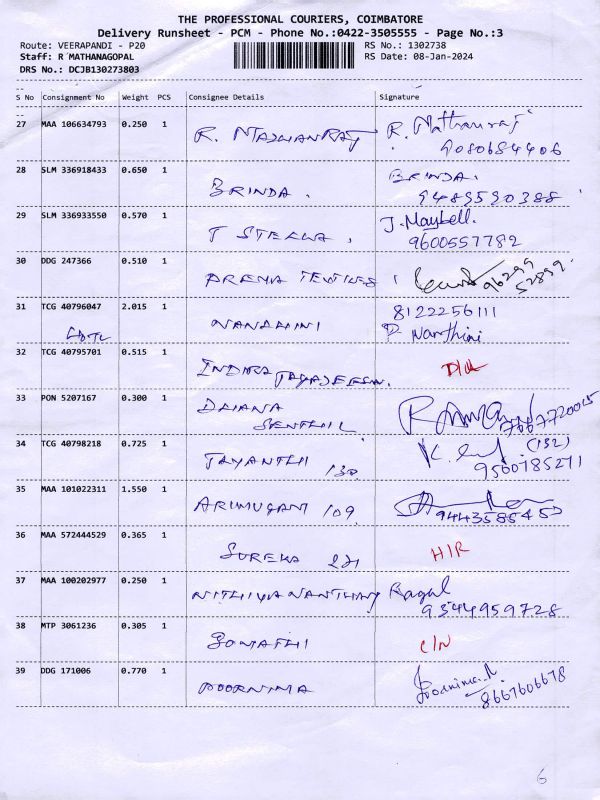 THE PROFESSIONAL COURIERS, COIMBATORE
Delivery Runsheet - PCM - Phone No.:0422-3505555 - Page No.:3
Route: VEERAPANDI - P20 RS No.: 1302738
Staff: R MATHANAGOPAL RS Date: 08-Jan-2024
DRS No.: DCJB130273803
S No Consignment No Weight PCS Consignee Details Signature
27 MAA 106634793 0.250 1 R. R. Mathanraj
9080684406
28 SLM 336918433 0.650 1 BRINDA. BRINDA.
9489590388
29 SLM 336933550 0.570 1 T STEEWA. J. Maybell.
9600557782
30 DDG 247366 0.510 1 PREMA TEXTILES 96299
52899
31 TCG 40796047 2.015 1 NANDHINI 8122256111
P. Nanthini
32 TCG 40795701 0.515 1 INDIRA D/L
33 PON 5207167 0.300 1 DAIANA
SENTHIL 7667720015
34 TCG 40798218 0.725 1 JAYANTHI 130 K. (132)
9500785271
35 MAA 101022311 1.550 1 ARUMUGAM 109
9443585453
36 MAA 572444529 0.365 1 SUREKA 221 H/R
37 MAA 100202977 0.250 1 NITHIYANANTHAN Ragul
9344959728
38 MTP 3061236 0.305 1 GOMATHI C/N
39 DDG 171006 0.770 1 POORNIMA Poornima.M
8667606678
6